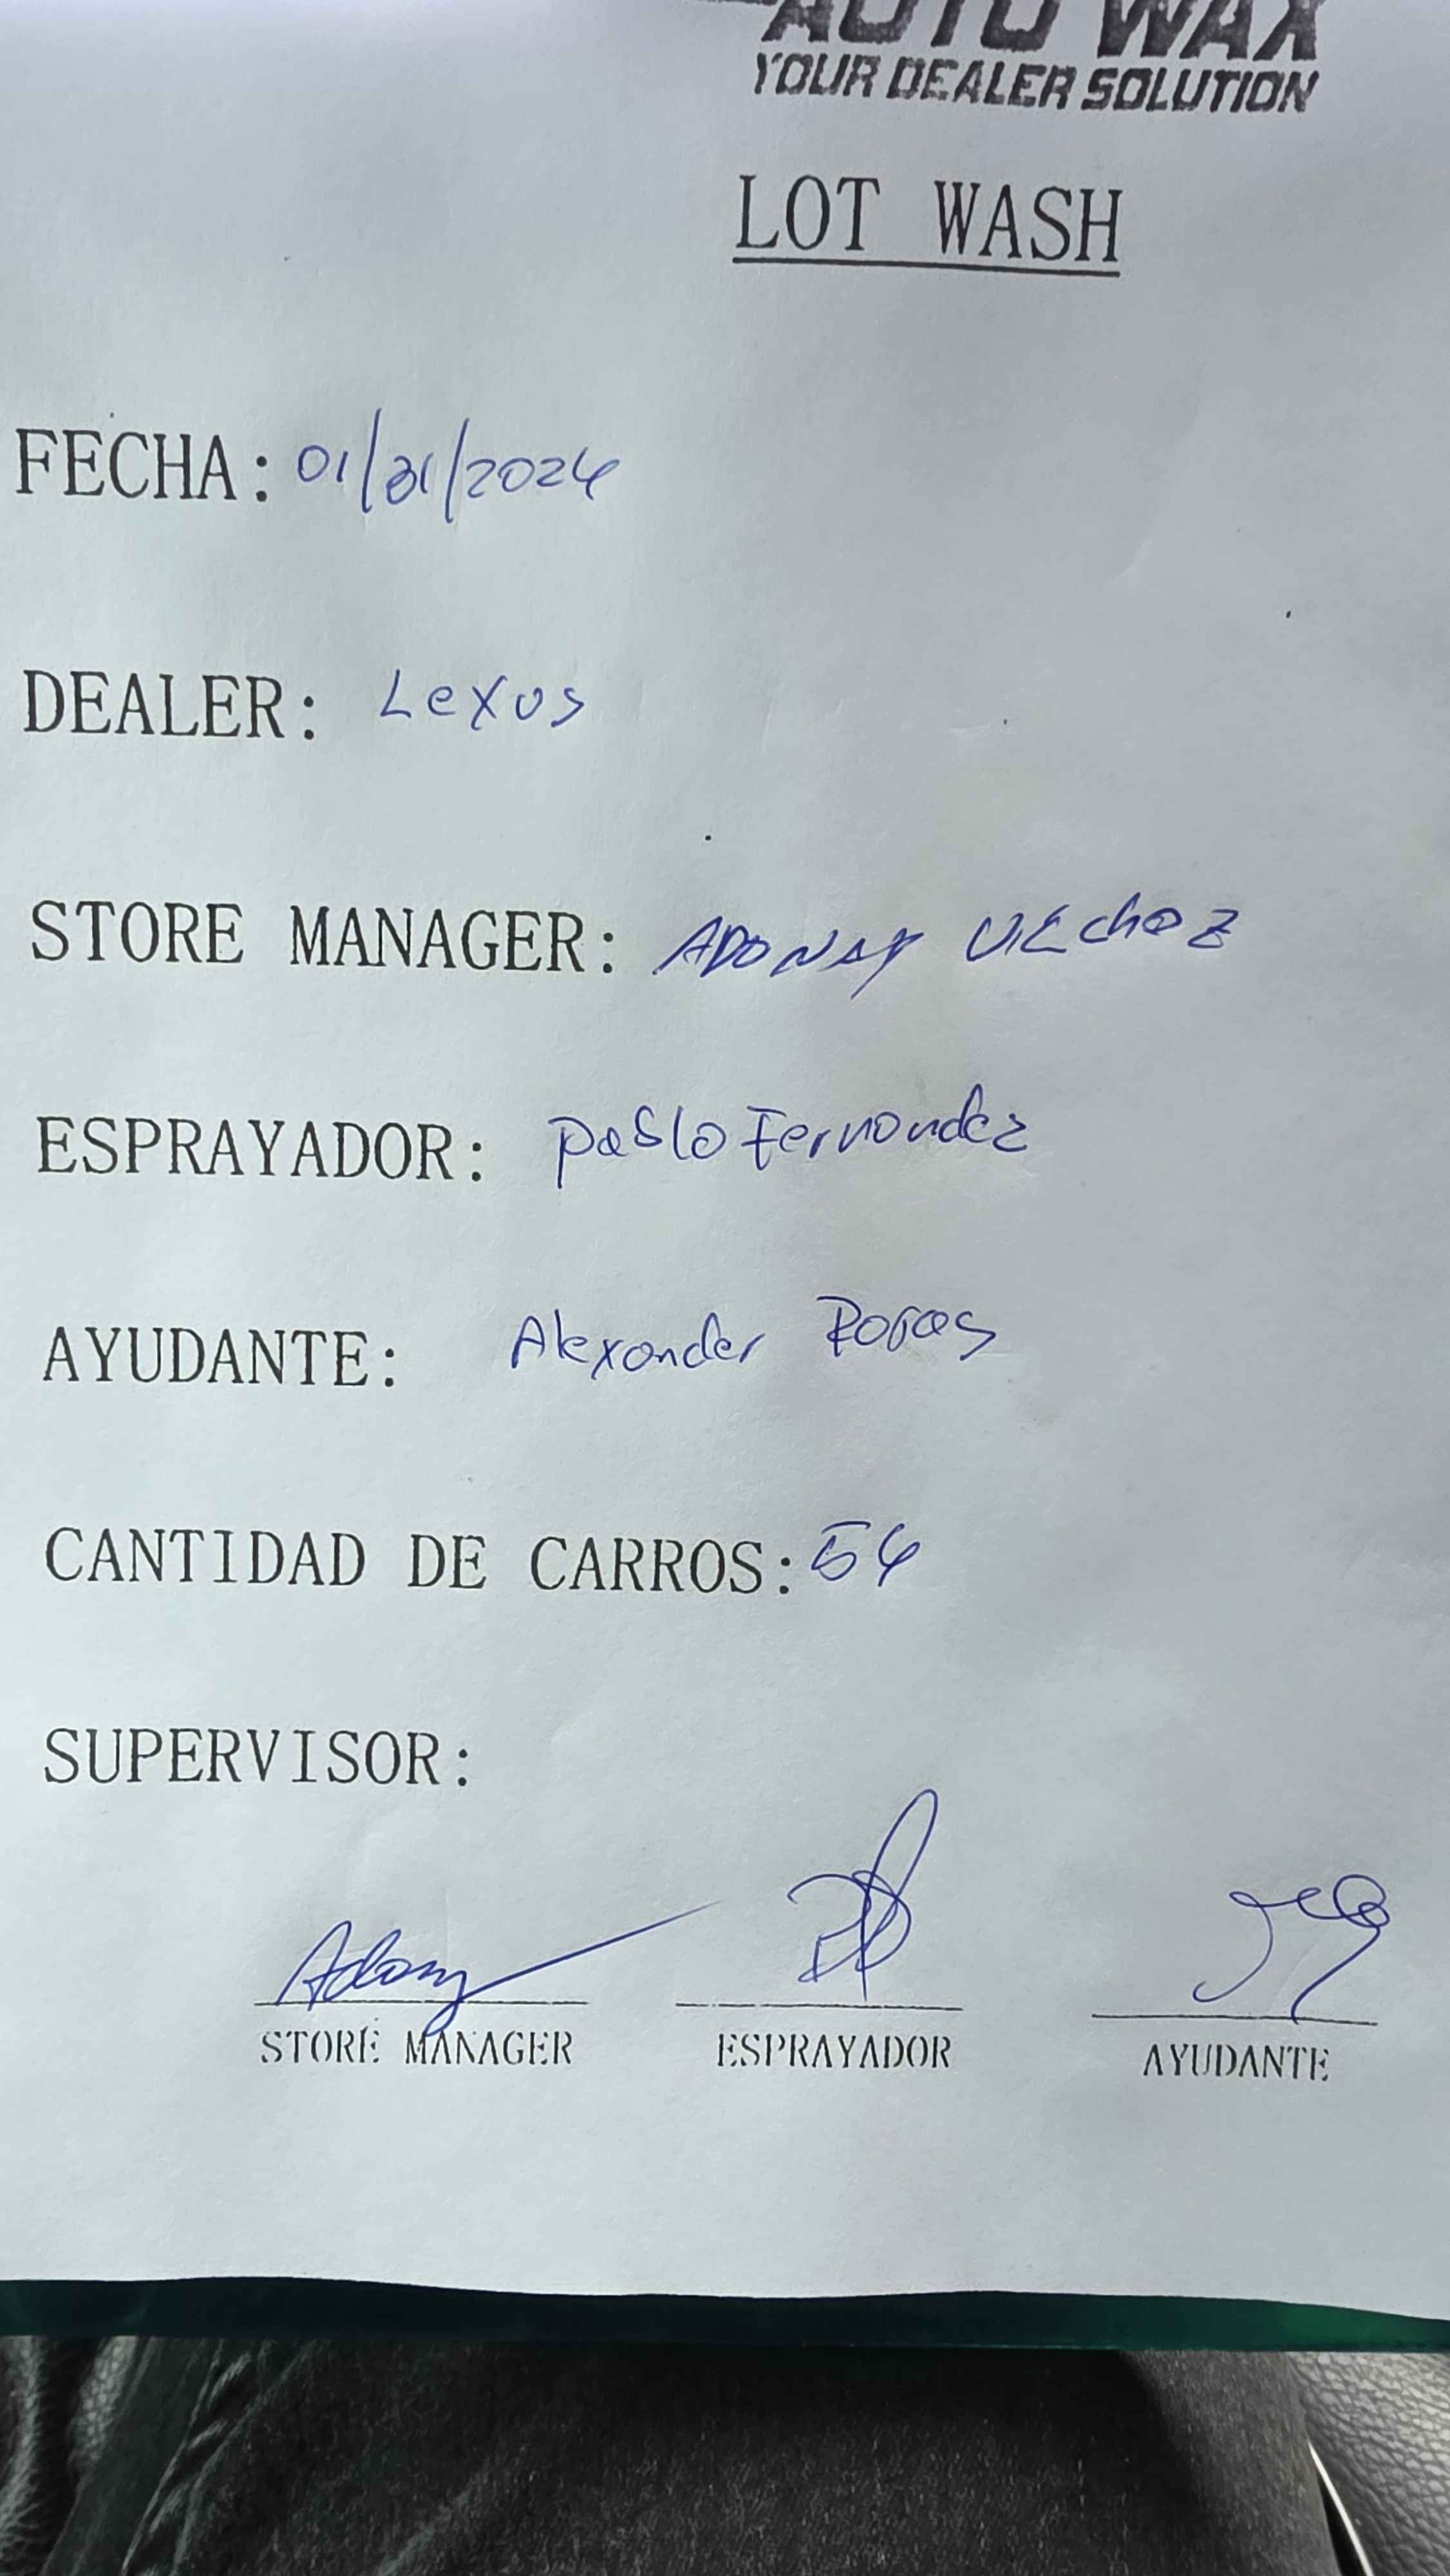 AUTO WAX
YOUR DEALER SOLUTION
LOT WASH
FECHA: 01/31/2024
DEALER: Lexus
STORE MANAGER: ADONAY
ESPRAYADOR: Pablo Fernandez
AYUDANTE: Alexander
CANTIDAD DE CARROS: 54
SUPERVISOR:
STORE MANAGER ESPRAYADOR AYUDANTE